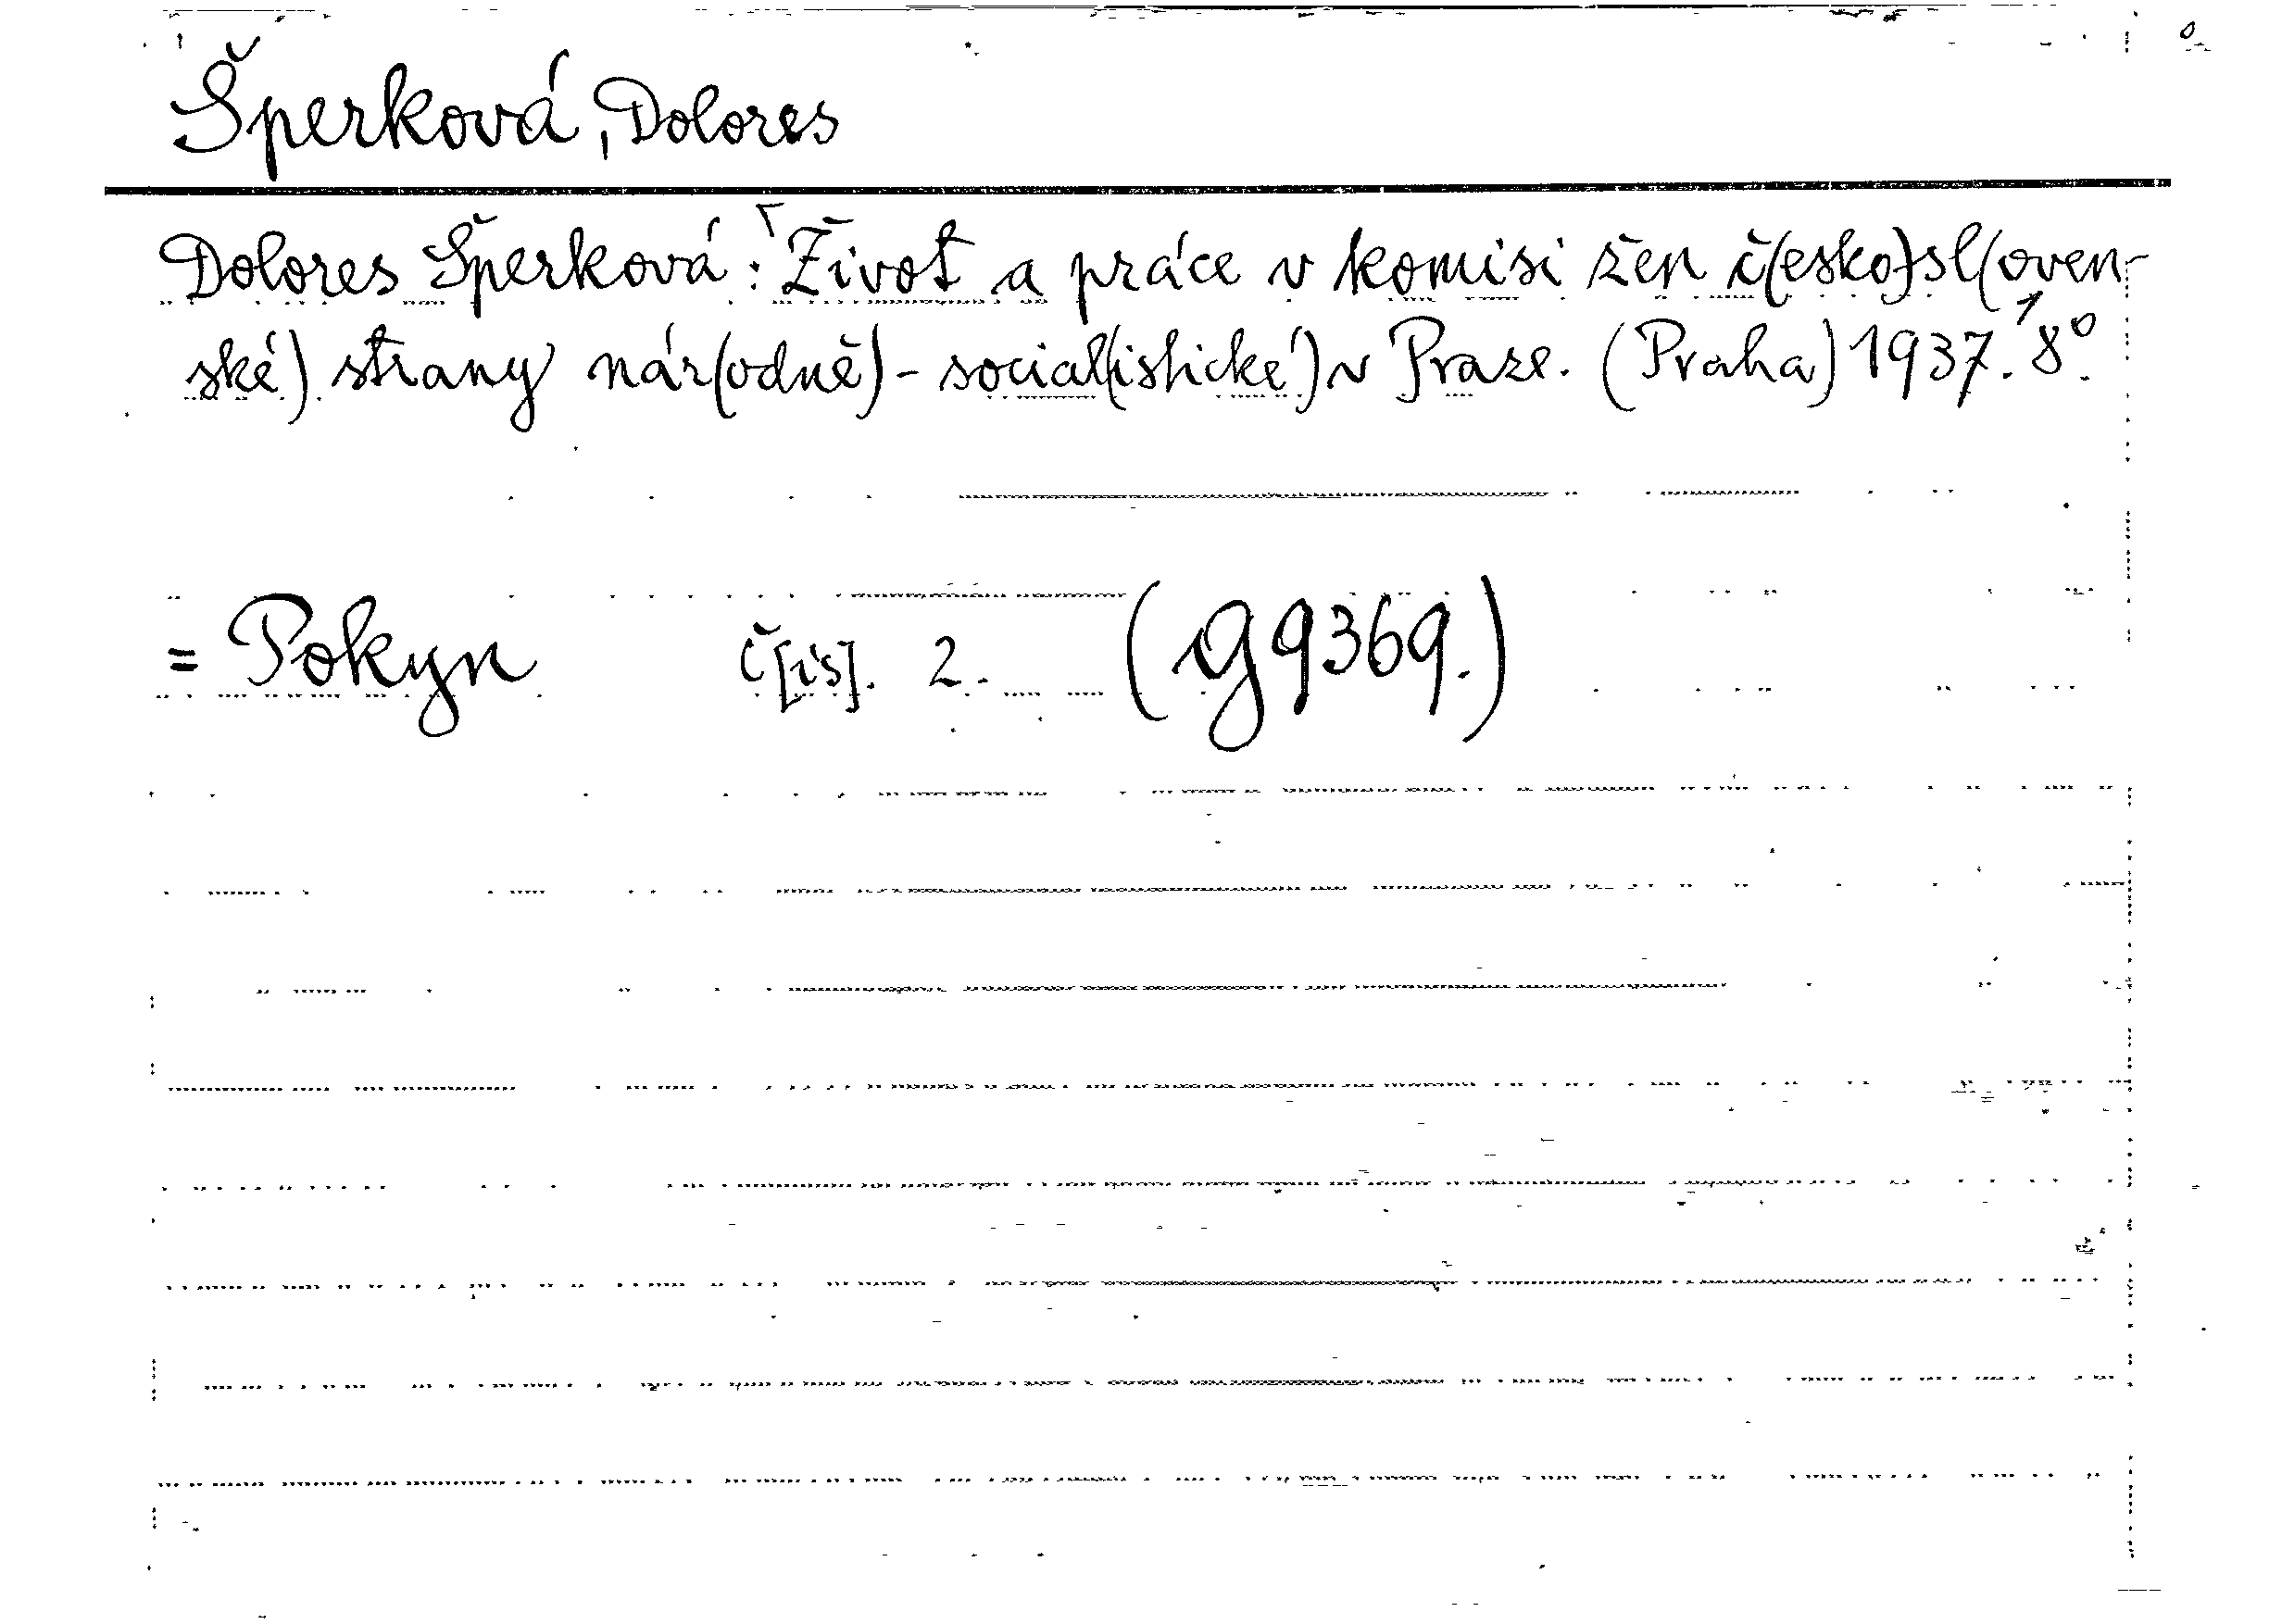 Šperková, Dolores
Dolores Šperková: Život a práce v komisi žen č(esko)sl(oven-
ské) strany nár(odně)-social(istické) v Praze. (Praha) 1937. 8°.
= Pokyn č[ís]. 2. (g 9369.)